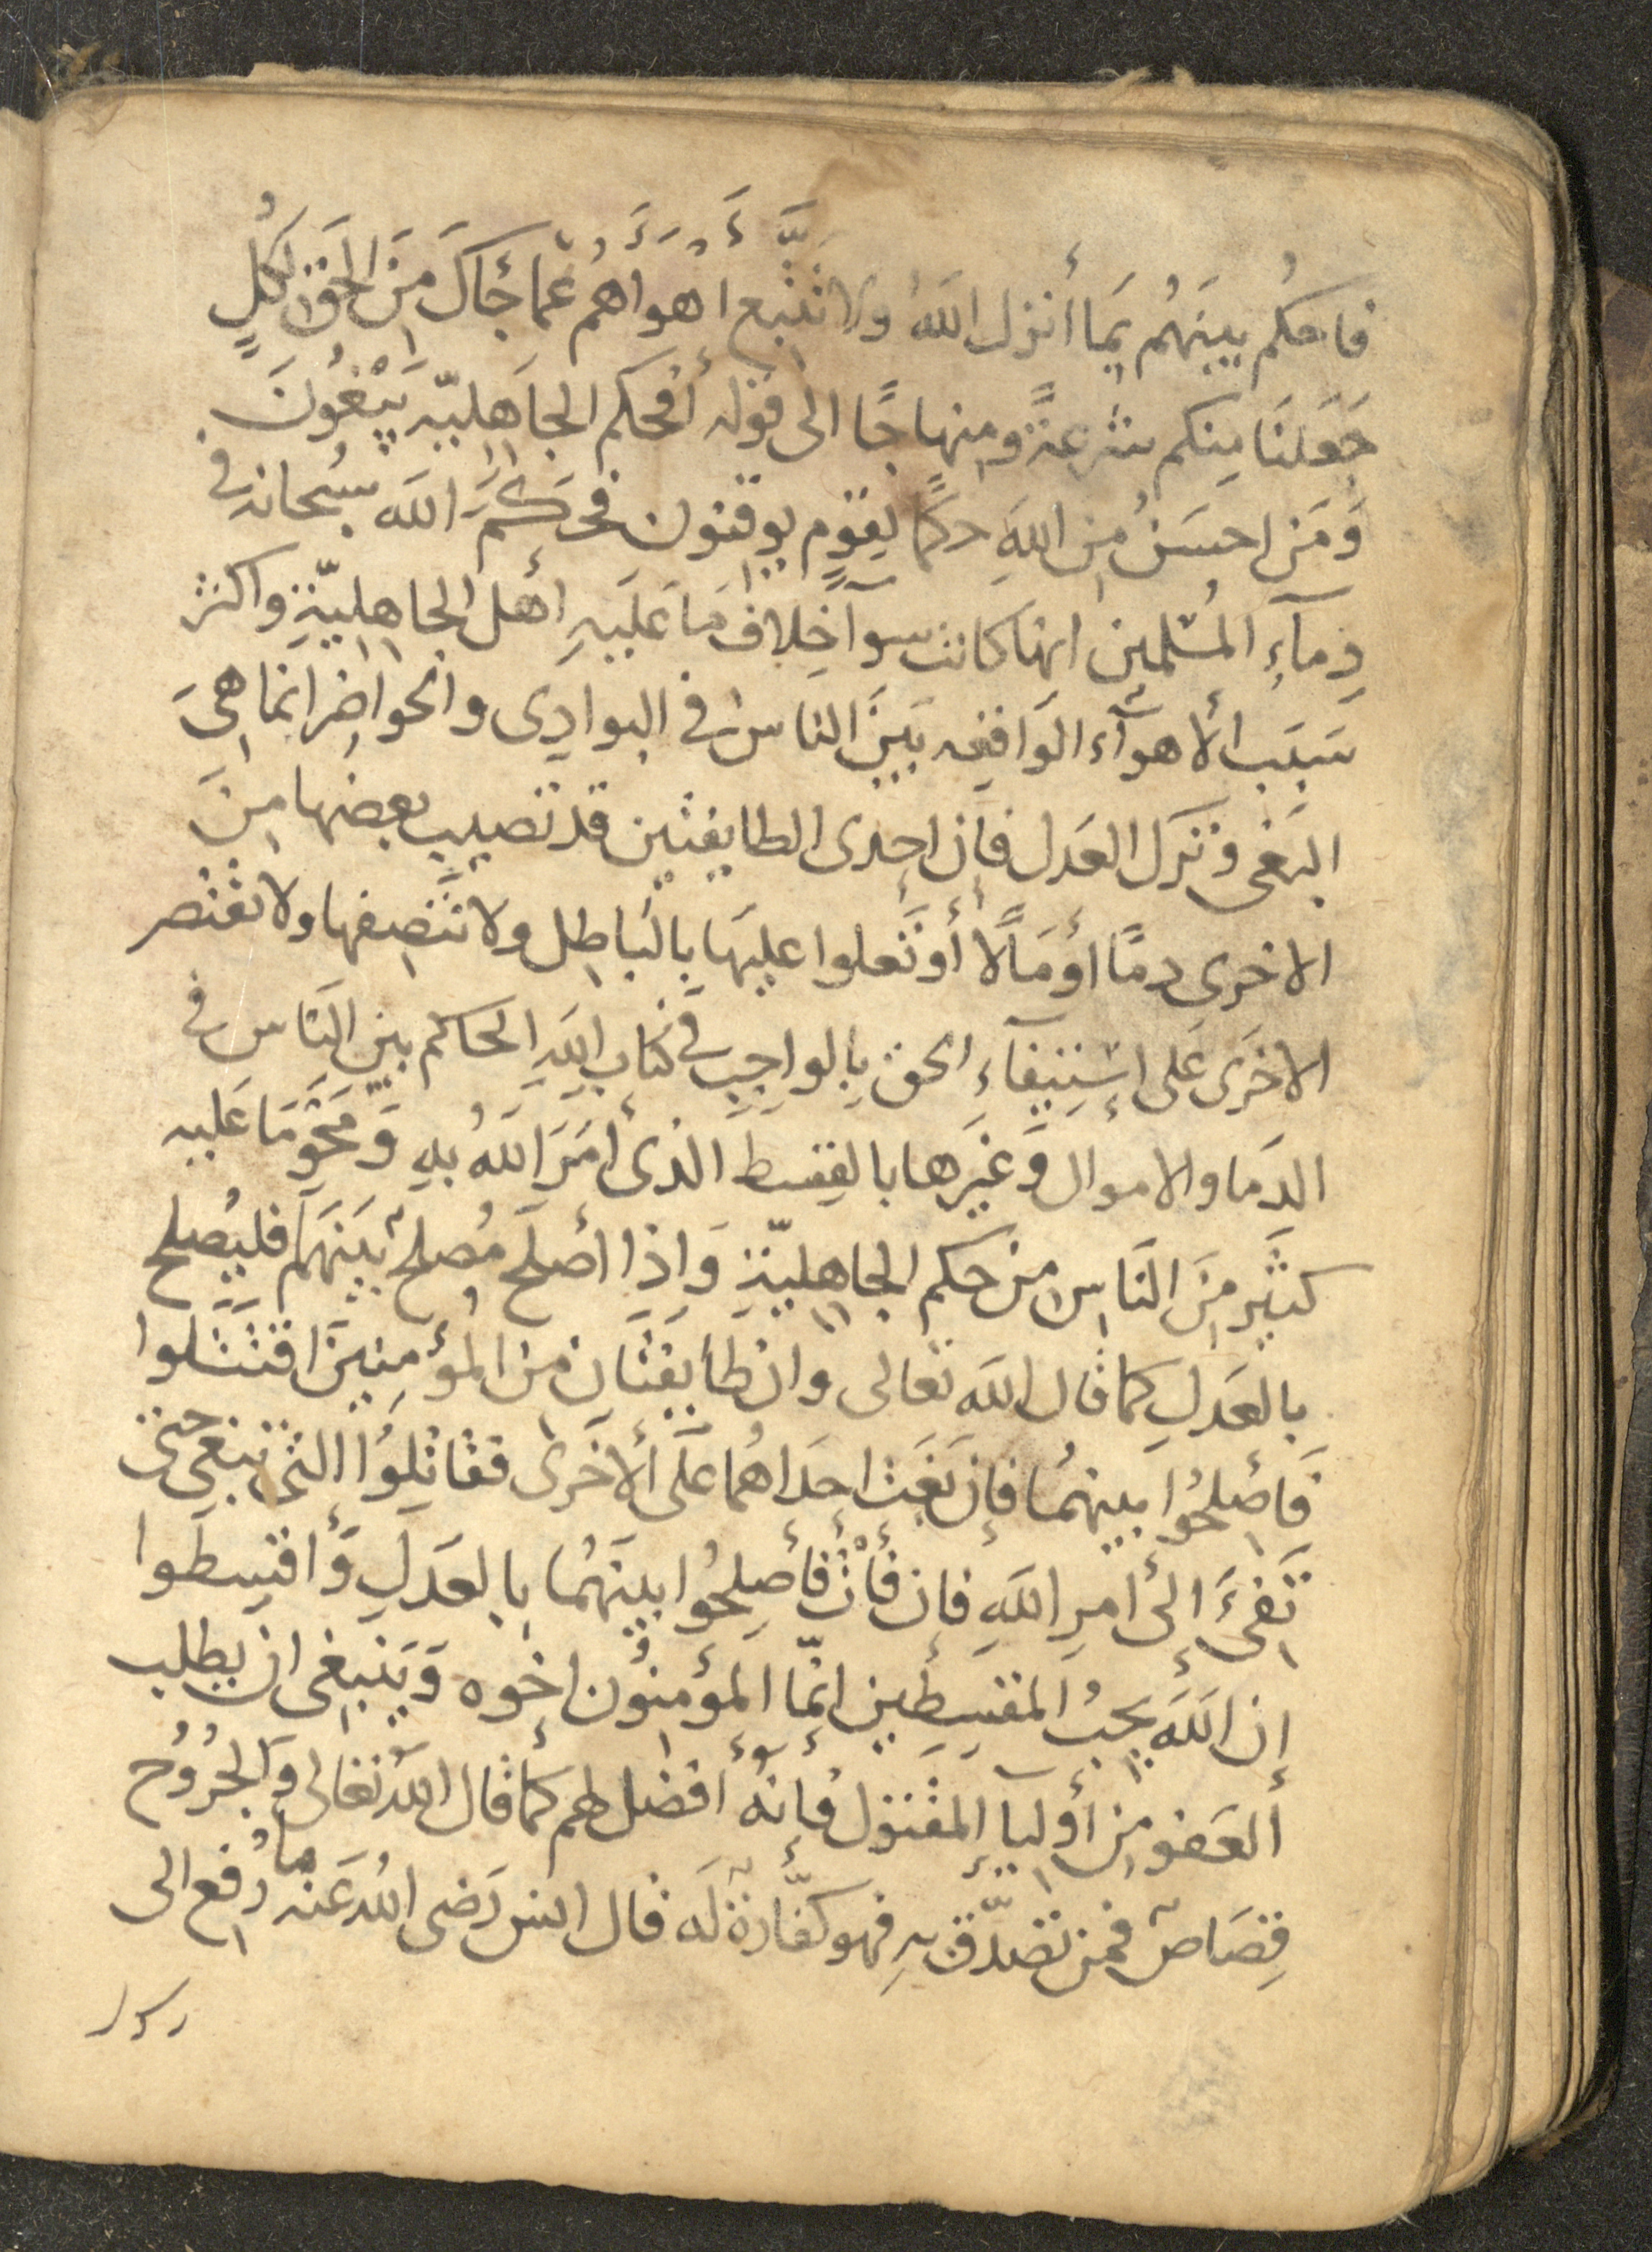 فاحكُم بينَهُم بِمَا أنزل اللَهُ ولا تتَّبع اهوَاهُم عَمَا جَأكَ مِنَ الحَق لِكُلٍ
جَعَلنَا مِنكم شرعةً ومِنهاجًا الى قوله أفحكم الجاهِليّه يَبْغُونَ
وَمَن احسَنُ مِن اللهِ حكمًا لِقوٍم يوقنون فحَكَمَ اللَه سُبحانه في
دِمآءِ المُسْلمين انها كانت سوآً خِلافَ مَا عَليَهِ أهل الجاهِليّةِ واكثر
سَبَب الأهوآء الوَاقِعه بَينَ النَاسِ في البوادِى والحواضِر انما هِىَ
البَغى وتَركَ العَدل فإن احِدى الطايفتين قد تصيب بعضها مِنَ
الاخرى دمًا أومَالًا أوتَعلوا عليهَا بالبَاطِل ولا تنصِفها ولا تقتصر
الاخرَى عَلى إستِيفآءِ الحق بِالواجِبِ في كتاب اللهِ الحاكم بين النَاس في
الدِمَا والاموال وَغيرَها بالقِسط الذى أمَرَ اللهُ بهِ وَمحَوَمَا عَليه
كثيَر مِنَ النَاسِ من حكم الجاهِليّةِ وَاِذا أصلَحَ مُصلحٌ بَينَهَم فليُصلح
بالعَدلِ كما قال اللَه تعالى وان طأيفتَان مِن المؤمِنِينَ اقتَتَلوا
فَأصلِحُوا بينهمُا فإن بَغَت احِدَاهُما عَلَى ألاخرَى فقَاتلِوُا التى تبغِى حتى
تَفِىَءَ إلىَ أمرِ اللهِ فإن فَأَتْ فأصلِحُوا بينَهُما بِالعَدلِ وَأقسِطوا
إن اللَهَ يحِبُ المقسِطِين إنّما المؤمنِوُن اخِوه وَيَنبِغى ان يطلب
ألعَفو مِن أوليآءِ المقتوُل فإنهُ أفضَل لهم كمأ قال اللهُ تعَالى وَالجُرُوُح
قِصَاصٌ فمن تصَدّقَ بهِ فهو كفّارةٌ لَه قال انس رَضى اللهُ عَنه مَا رُفِع الى